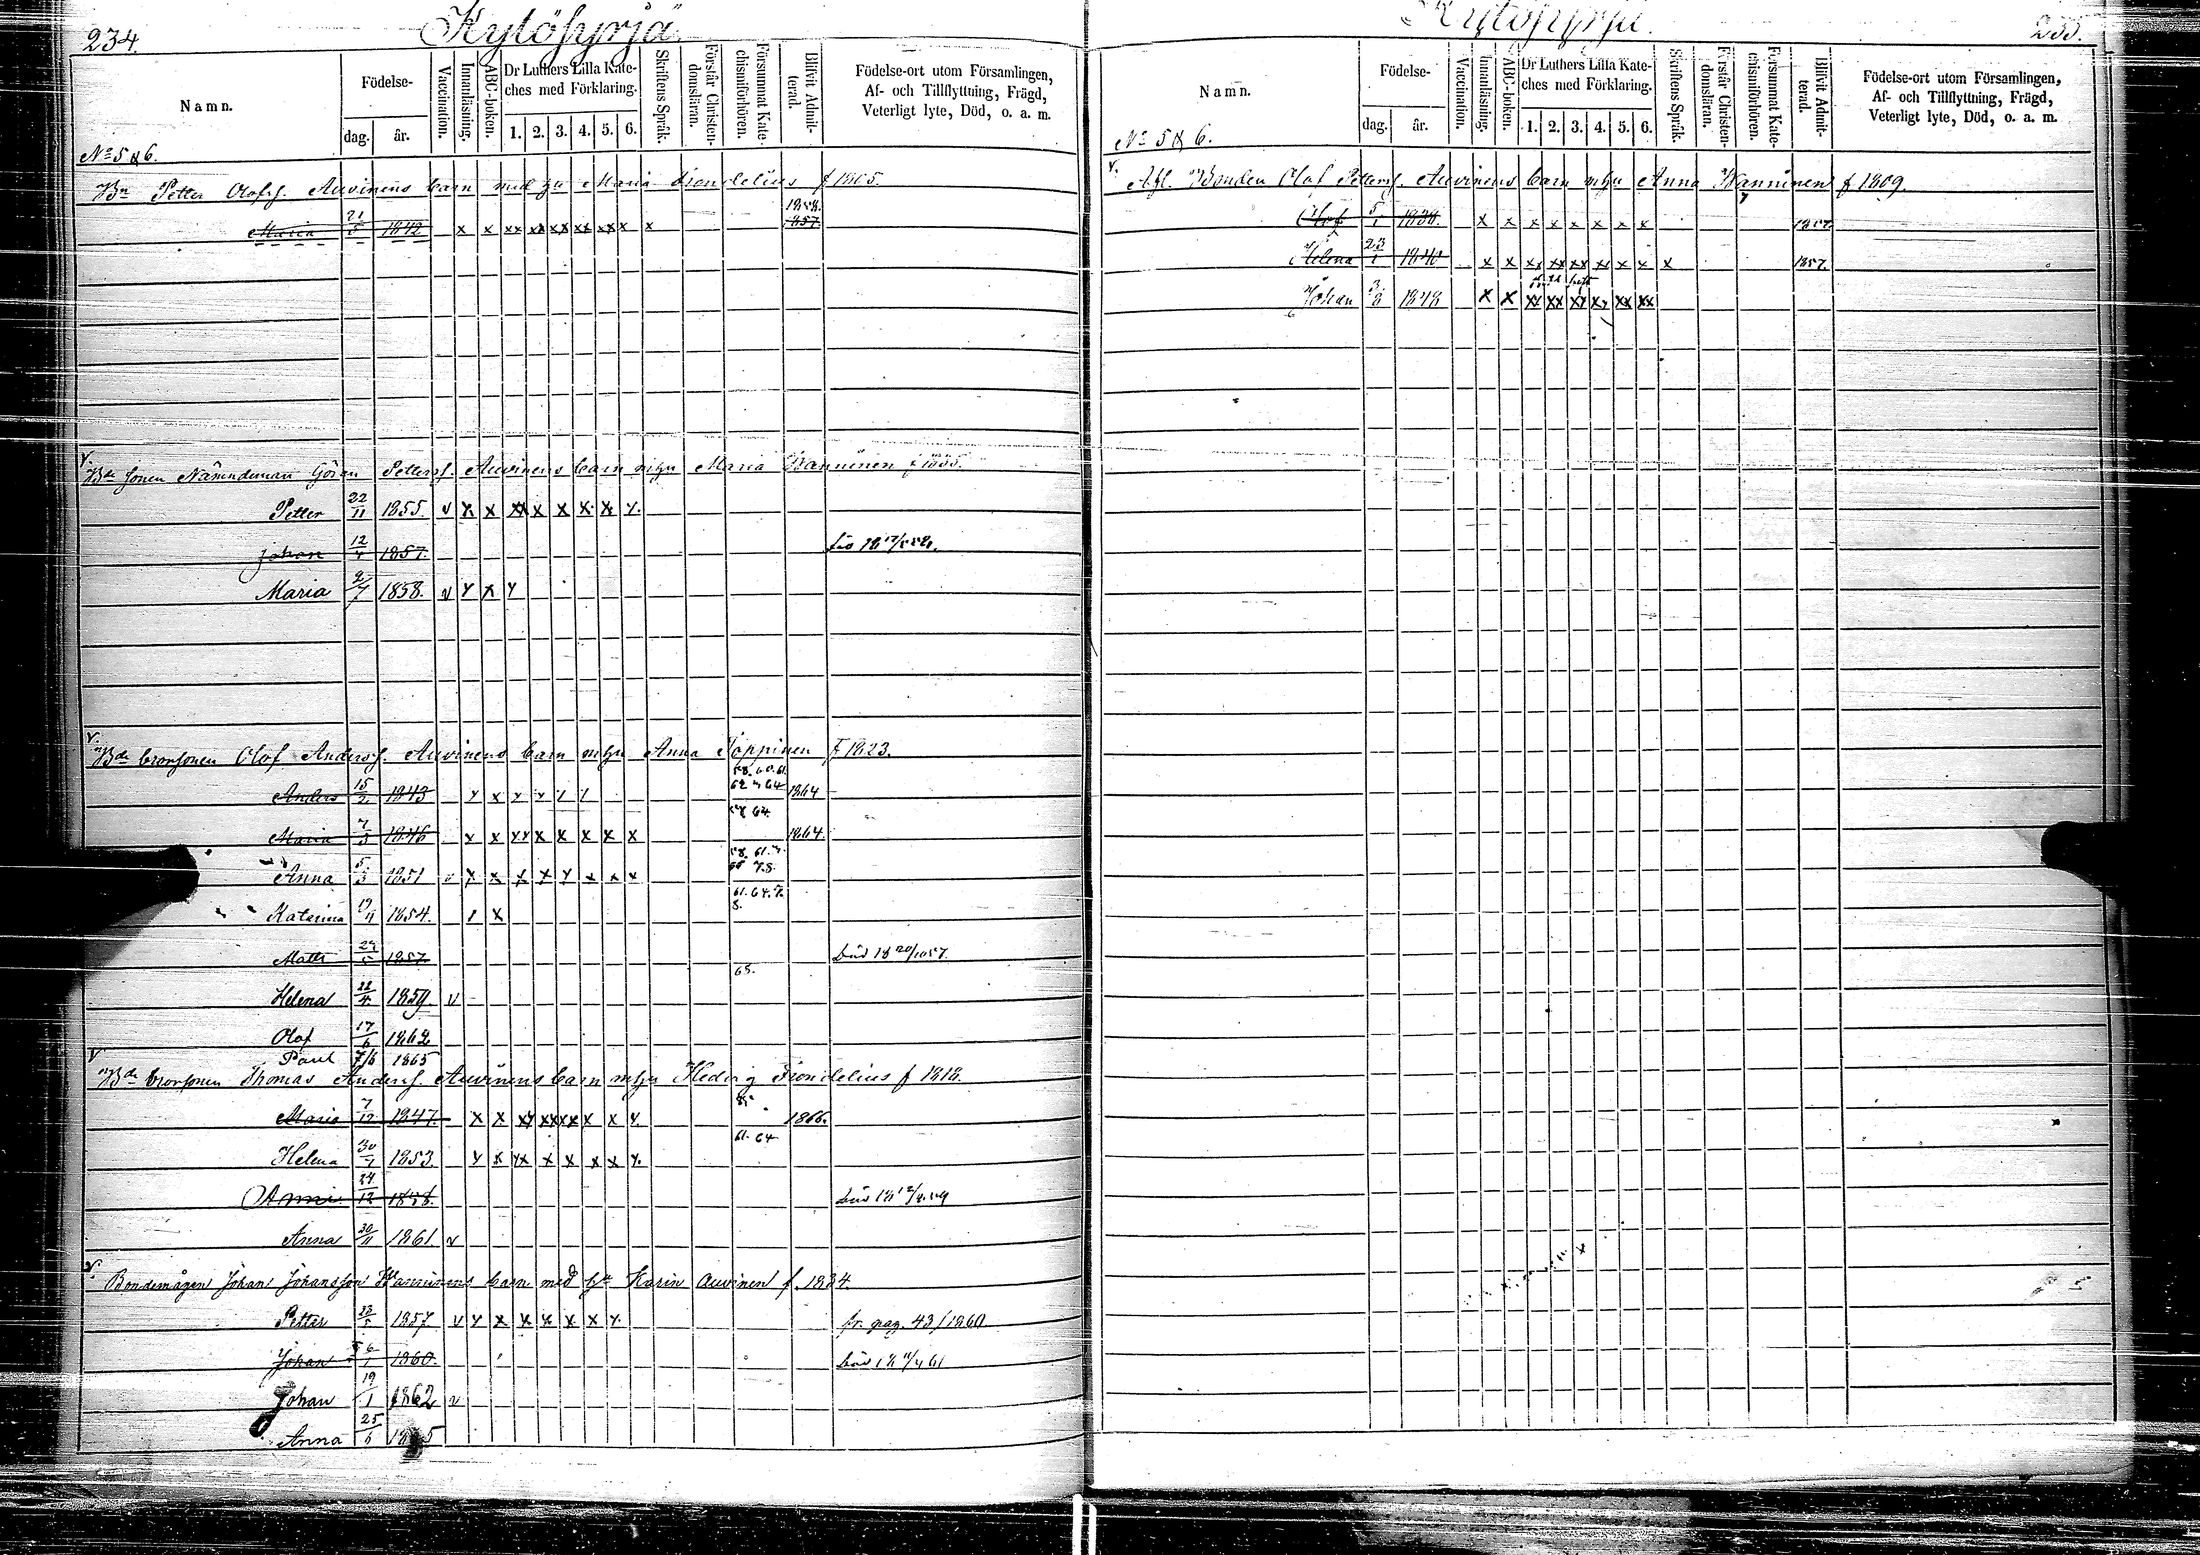 234.
Kytöhyrjä
Namn.
Födelse-
dag.
år.
Vaccination.
Innanläsning.
ABC-boken.
Dr Luthers Lilla Kate-
ches med Förklaring.
1. 2. 3. 4. 5. 6.
Skriftens Språk.
Förstår Christen-
domsläran.
Försummat Kate-
chismiförhören.
Blifvit Admit-
terad.
Födelse-ort utom Församlingen,
Af- och Tillflyttning, Frägd,
Veterligt lyte, Död, o. a. m.
No 5 & 6.
Bn Petter Olofs. Auvinens barn med hu Maria f 1805.
Maria 21/5 1842 x x xx xx xx xx xx x x 1858. 1857
Bde sonen Nämndeman Göran Petters. Auvinens barn m hu Maria f 1835.
Petter 22/11 1855 v x x xx x x x x x.
Johan 12/4 1857.
Maria 9/7 1858. v x x x
Bde brorsonen Olof Anders. Auvinens barn m hu Anna Toppinen f 1823.
Anders 15/2 1843 x x x x / / 58. 60. 61. 62 64 1864
Maria 7/3 1846 x x xx x x x x x 64. 1864.
Anna 5/3 1851 v x x x x x x x x
Katarina 19/11 1854. x x 61. 64. 7. 8.
Matti 24/5 1857. död 18 20/10 57.
68.
Helena 22/4 1859 v
Olof 17/6 1862
Paul 7/6 1865
Bde brorsonen Thomas Anders. Auvinens barn m hu Hedvig f 1818.
Maria 7/12 1847. x x xx xx xx x x x. 1866.
Helena 30/7 1853. x x xx x x x x x. 61. 64
Anni 24/12 1858. död 18 12/2 59
Anna 30/11 1861 v
Bondemågen Johan Johansson Hanninens barn med hu Karin Auvinen f. 1834.
Petter 23/5 1857 v x x x x x x x. fr. pag. 43/1860
Johan 6/1 1860. död 18 11/4 61
Johan 19/1 1862 v
Anna 25/5
Kytöhyrjä.
235.
Namn.
Födelse-
dag.
år.
Vaccination.
Innanläsning.
ABC-boken.
Dr Luthers Lilla Kate-
ches med Förklaring.
1. 2. 3. 4. 5. 6.
Skriftens Språk.
Förstår Christen-
domsläran.
Försummat Kate-
chismiförhören.
Blifvit Admit-
terad.
Födelse-ort utom Församlingen,
Af- och Tillflyttning, Frägd,
Veterligt lyte, Död, o. a. m.
No 5 & 6.
Afl. Bonden Olof Petters. Auvinens barn m hu Anna Hanninen f 1809.
Olof 5/1 1838. x x x x x x x x 1857.
Helena 23/1 1840 x x xx xx xx xx x x x 1857.
Johan 3/8 1848 x x xx xx xx xx xx xx